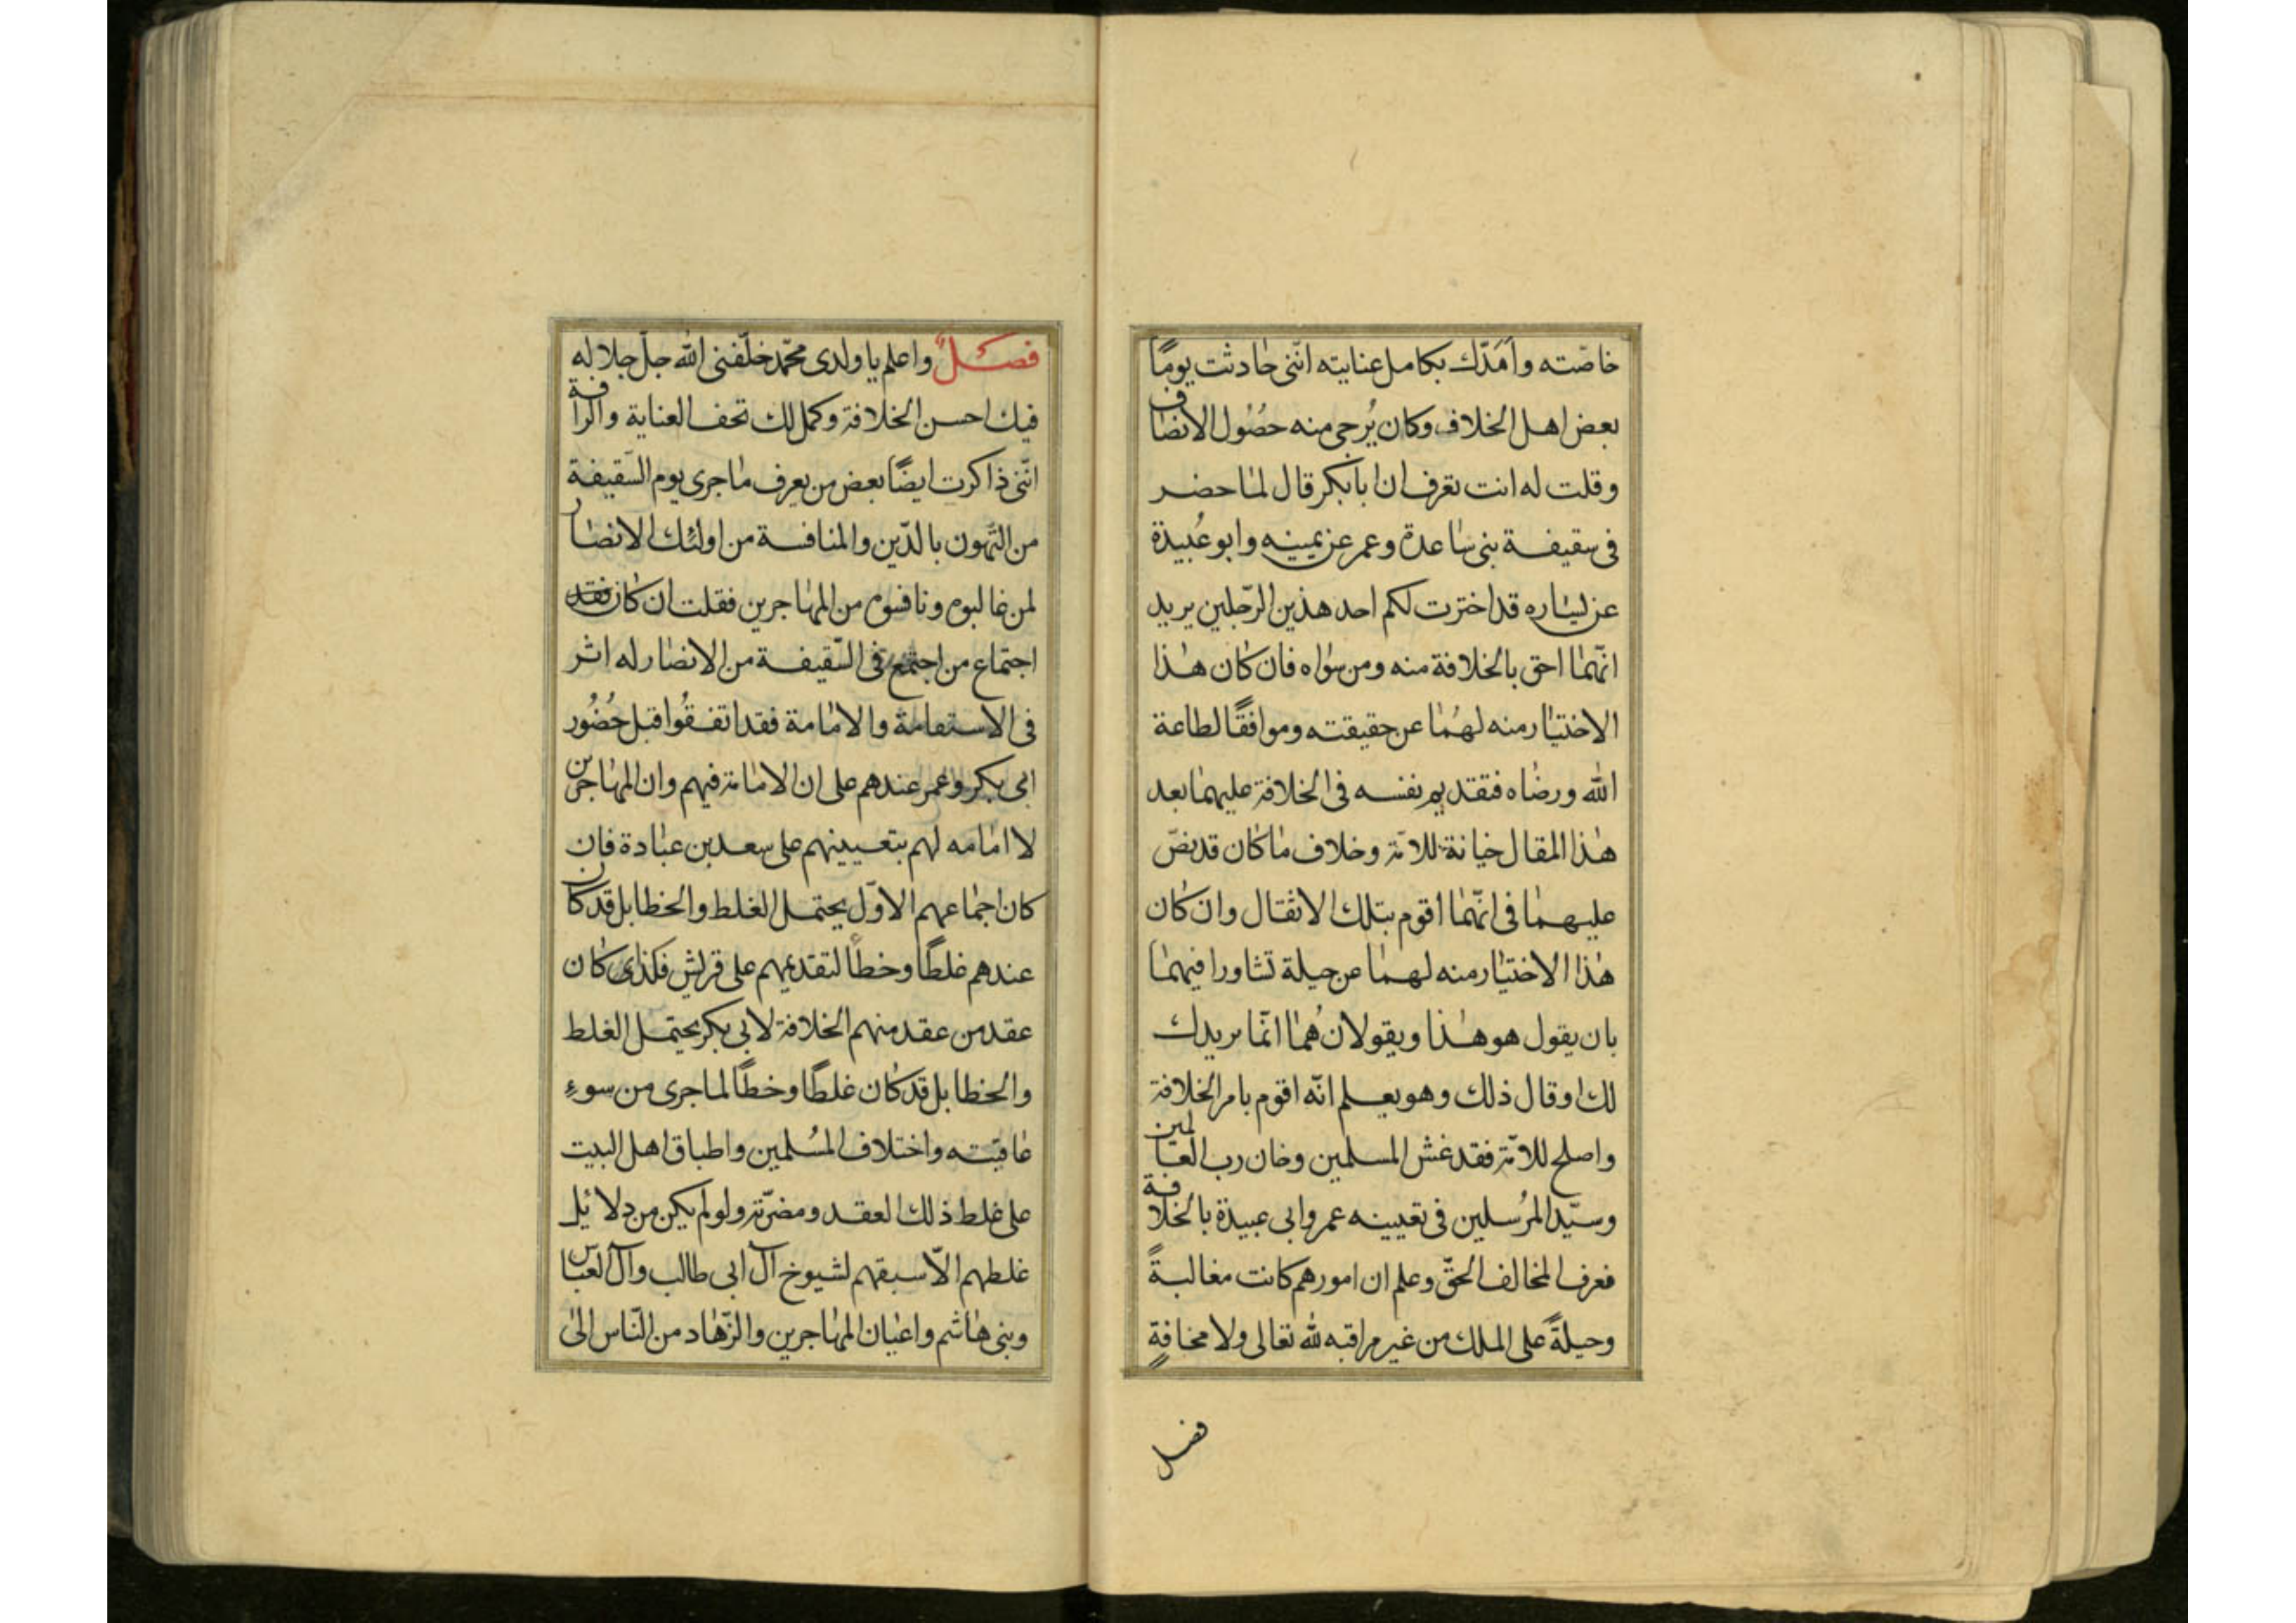 خاصّته وامَدّك بكامل عنايته انّنى حادثت يومًا
بعض اهل الخلاف وكان يُرجى منه حصُول الانصاف
وقلت له انت تعرف ان ابا بكر قال لما حضر
فى سقيفة بنى ساعدة وعمر عن يمينه وابو عُبيدة
عن يساره قد اخترت لكم احد هذين الرّجلين يريد
انّهما احق بالخلافة منه ومن سواه فان كان هذا
الاختيار منه لهُما عن حقيقته وموافقًا لطاعة
الله ورضاه فتقديم نفسه فى الخلافة عليهما بعد
هذا المقال خيانة للامّة وخلاف ما كان قد نصّ
عليهما فى انّهما اقوم بتلك الاثقال وان كان
هذا الاختيار منه لهما عن حيلة تشاورا فيهما
بان يقول هو هذا ويقولان هُما انّما نريدك
لك او قال ذلك وهو يعلم انّه اقوم بامر الخلافة
واصلح للامّة فقد غش المسلمين وخان رب العالمين
وسيّد المرُسلين فى تعيينه عمر وابى عبيدة بالخلافة
فعرف المخالف الحقّ وعلم ان امورهم كانت مغالبةً
وحيلةً على الملك من غير مراقبه لله تعالى ولا مخافةٍ
فصل
فصـلٌ واعلم يا ولدى محمّد خلّفنى الله جلّ جلاله
فيك احسن الخلافة وكمل لك تحف العناية والرافة
انّنى ذاكرت ايضًا بعض من يعرف ما جرى يوم السّقيفة
من التّهون بالدّين والمنافسة من اولئك الانصار
لمن غالبوم ونافسوم من المهاجرين فقلت ان كان فقد
اجتماع من اجتمع فى السّقيفة من الانصار له اثر
فى الاستقامة والامامة فقد اتفقُوا قبل حُضُور
ابى بكر وعمر عندهم على ان الامامة فيهم وان المهاجرين
لا امامه لهم بتعيينهم على سعد بن عبادة فان
كان اجماعهم الاوّل يحتمل الغلط والخطا بل قد كان
عندهم غلطًا وخطأً لتقديمهم على قريش فكذى كان
عقد من عقد منهم الخلافة لابى بكر يحتمل الغلط
والخطا بل قد كان غلطًا وخطًا لما جرى من سوءِ
عاقبته واختلاف المسُلمين واطباق اهل البيت
على غلط ذلك العقد ومضرّته ولو لم يكن من دلائل
غلطهم الّا سبقهم لشيوخ آل ابى طالب وآل العبّاس
وبنى هاشم واعيان المهاجرين والزّهاد من النّاس الى